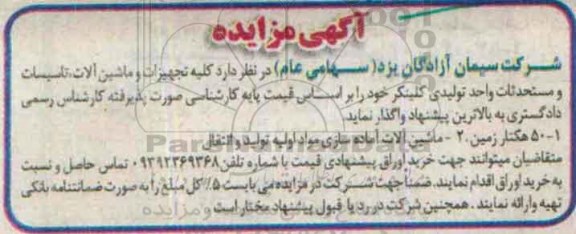 آگهی مزایده
شرکت سیمان آزادگان یزد (سهامی عام) در نظر دارد کلیه تجهیزات و ماشین آلات، تاسیسات
و مستحدثات واحد تولیدی کلینکر خود را بر اساس قیمت پایه کارشناسی صورت پذیرفته کارشناس رسمی
دادگستری به بالاترین پیشنهاد واگذار نماید.
۱-۵۰ هکتار زمین ۲۰ - ماشین آلات آماده سازی مواد اولیه تولید و انتقال
متقاضیان میتوانند جهت خرید اوراق پیشنهادی قیمت با شماره تلفن ۰۹۳۹۲۳۶۹۳۶۸ تماس حاصل و نسبت
به خرید اوراق اقدام نمایند. ضمناً جهت شرکت در مزایده می بایست ۵٪ کل مبلغ را به صورت ضمانتنامه بانکی
تهیه وارائه نمایند. همچنین شرکت در رد یا قبول پیشنهاد مختار است